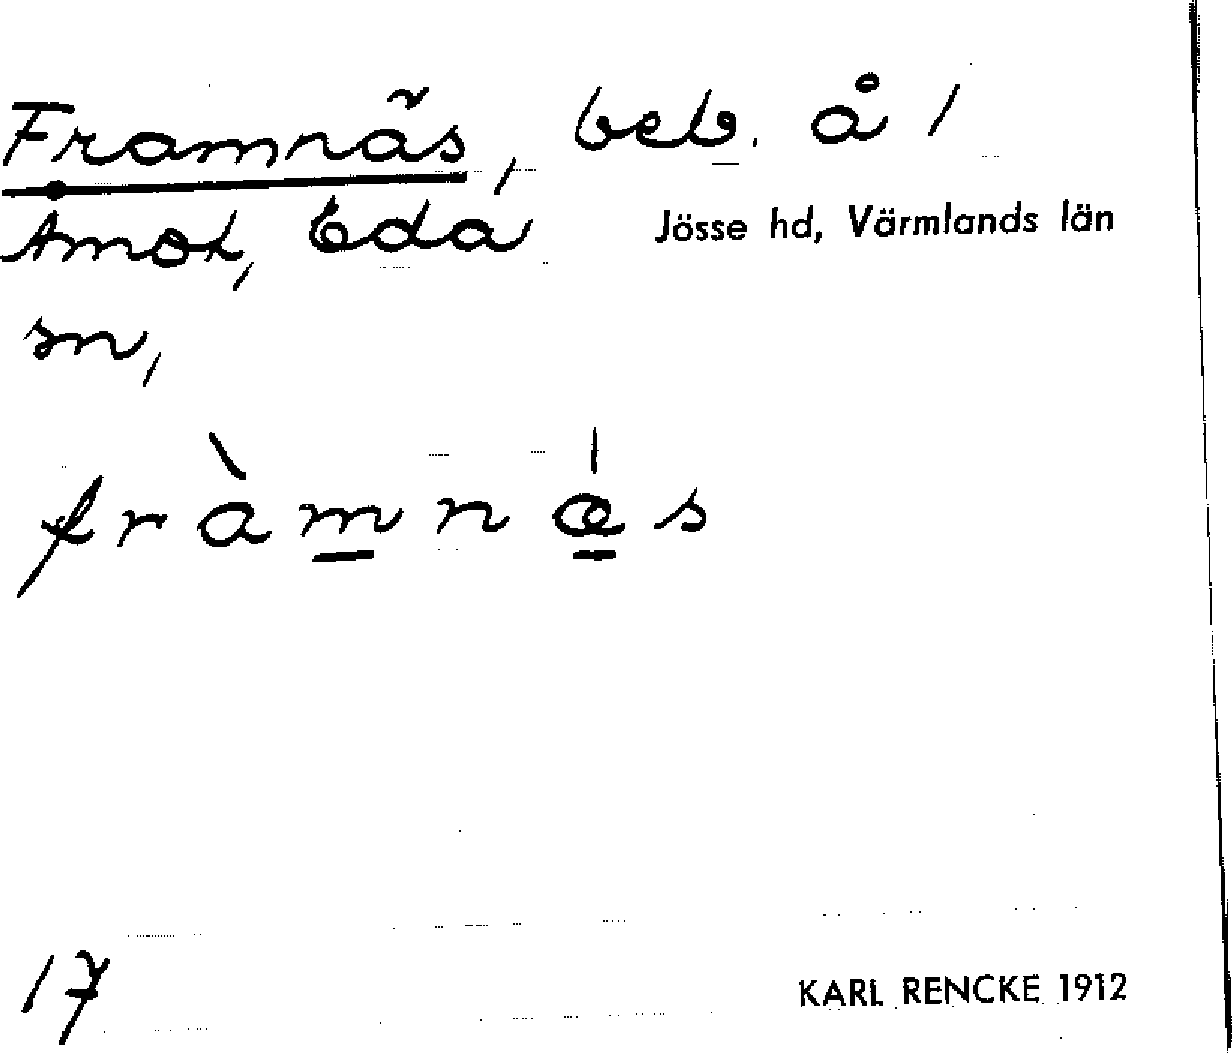 Framnäs, beb. å /
Åmot, Eda Jösse hd, Värmlands län
sn,
fràmnæs
17 KARL RENCKE 1912